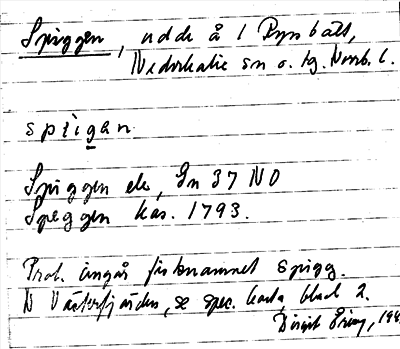 Spiggen, udde å I Rynbält,
Nederkalix sn o. tg. Norrb. l.
spiggan
Spiggen ek, Gn 37 NO
Speggen kar. 1793.
Prob. ingår fisknamnet spigg.
N Västerfjärden, se spec. karta, blad 2.
Birgit